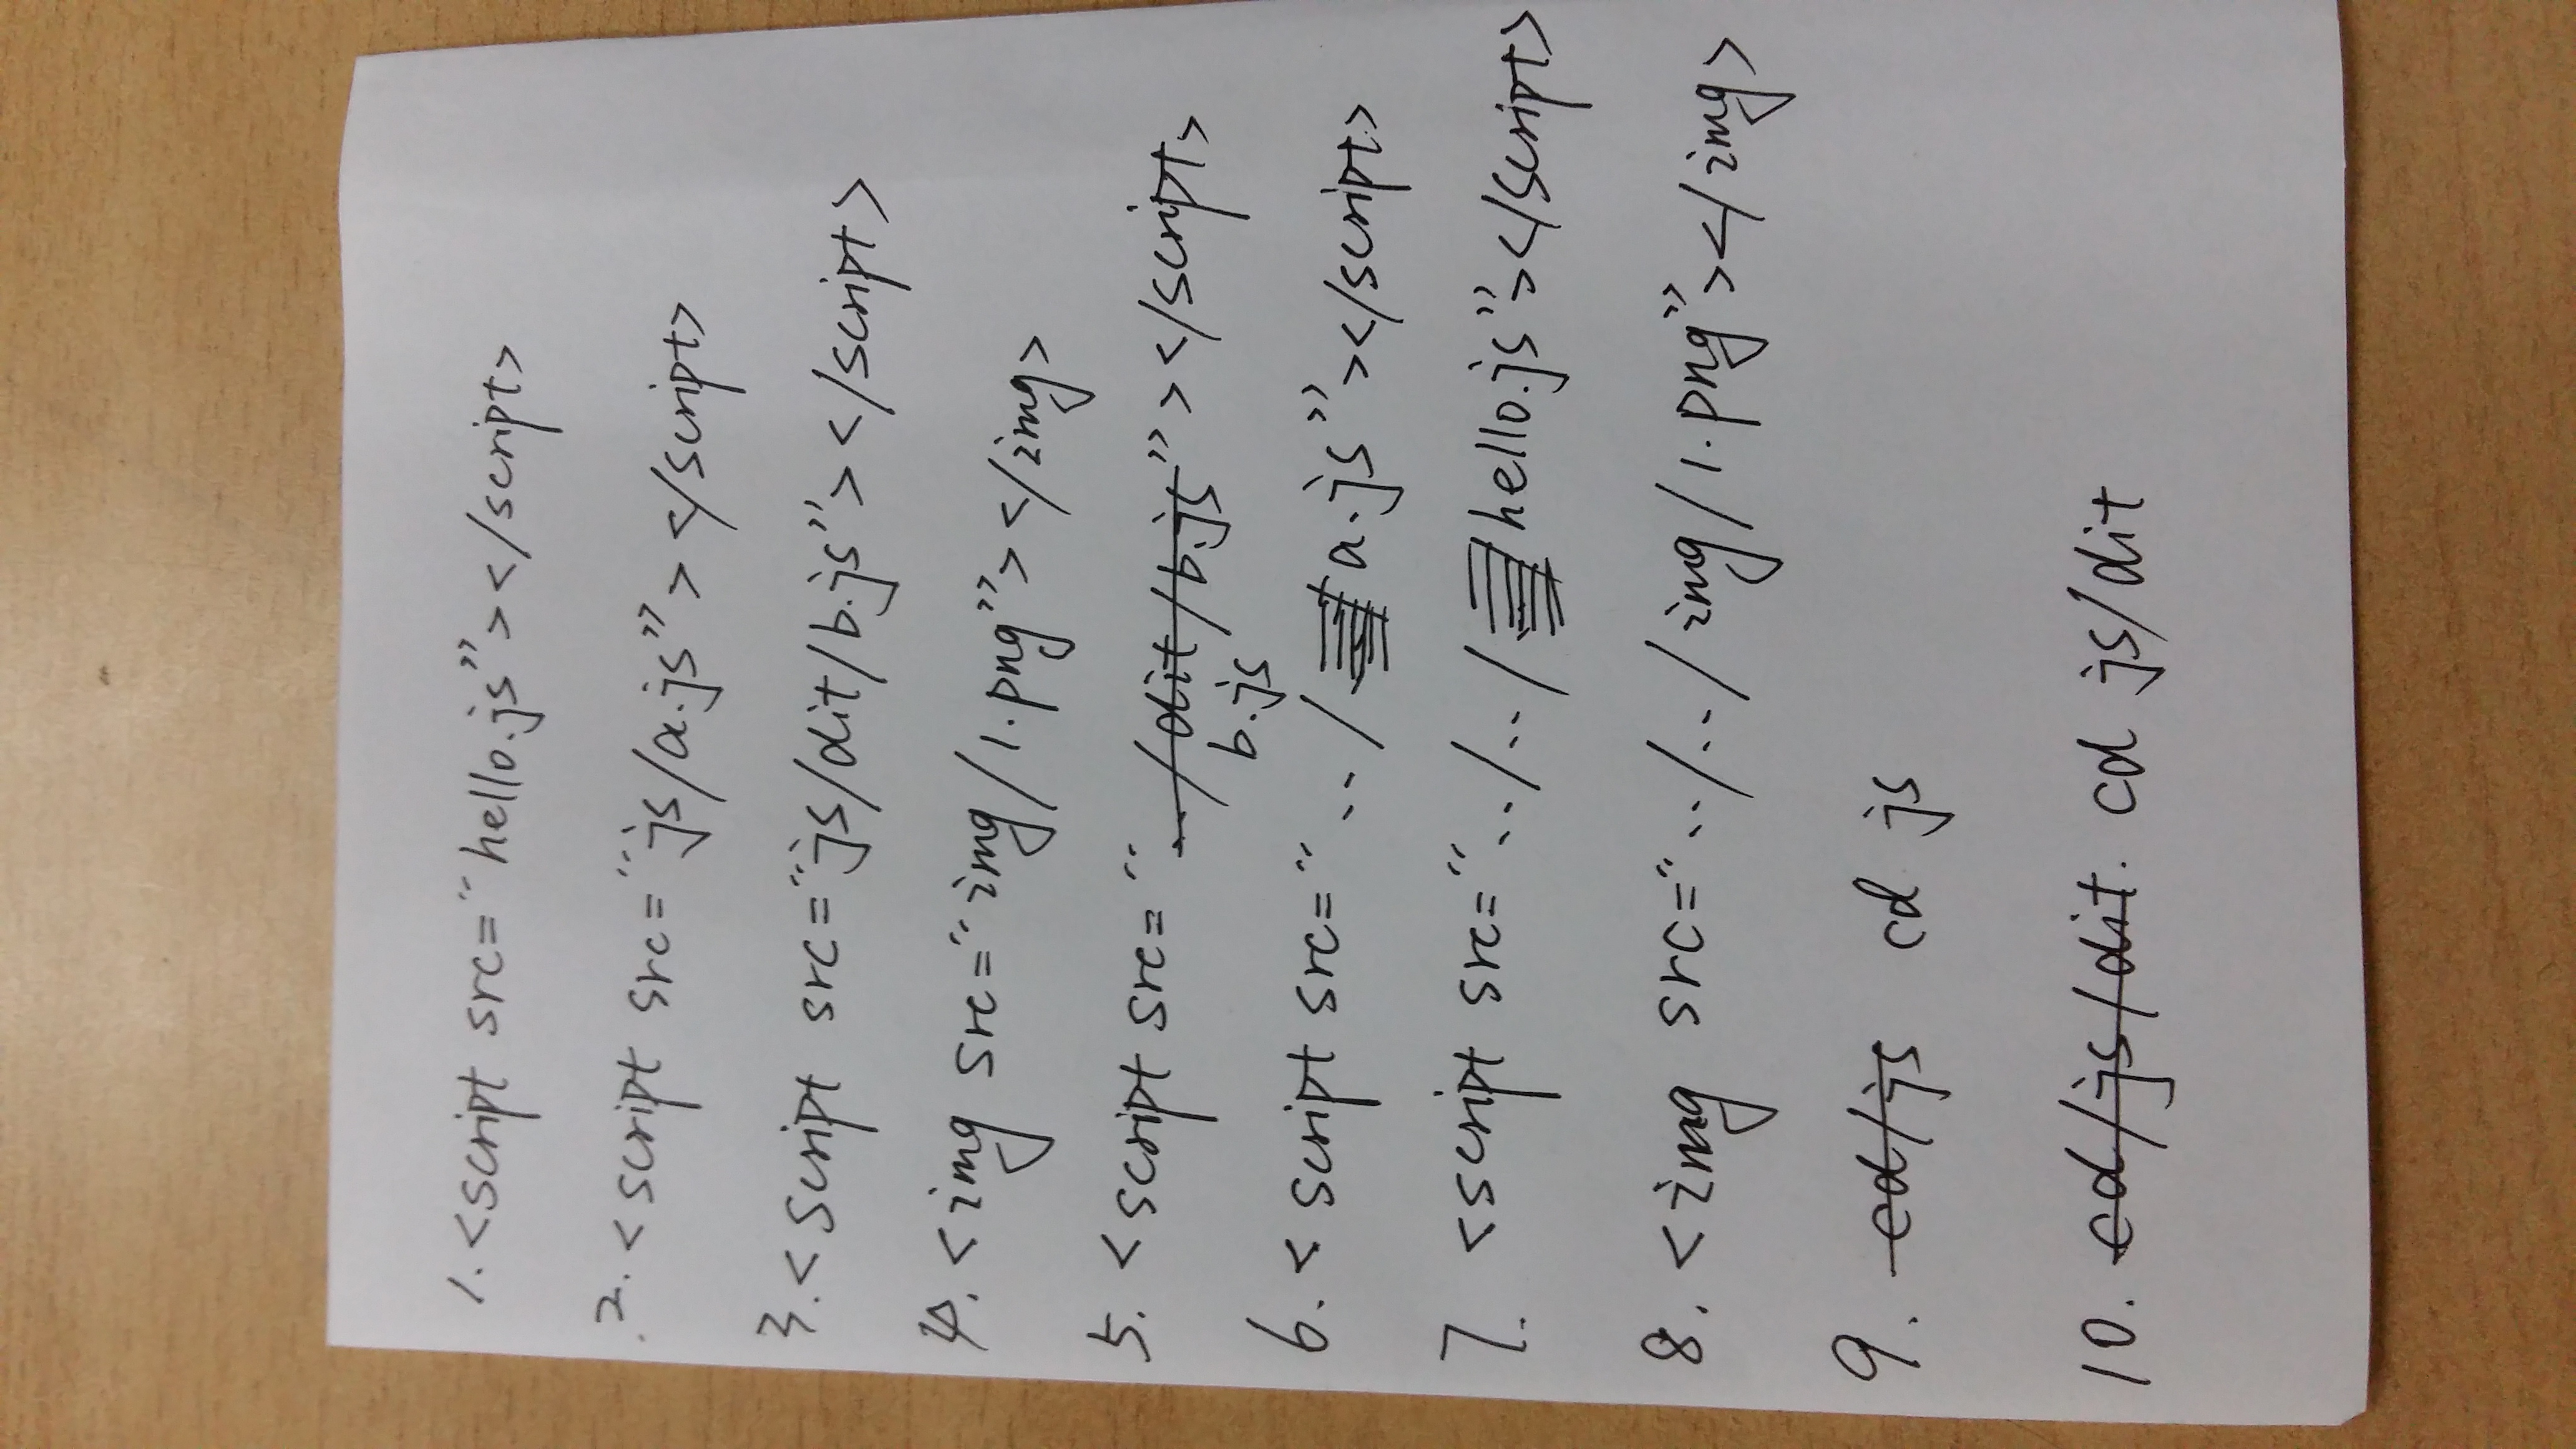 1. <script src="hello.js"></script>
2. <script src="js/a.js"></script>
3. <script src="js/dit/b.js"></script>
4. <img src="img/1.png"></img>
5. <script src="../dit/b.js"></script>
b.js
6. <script src="../a.js"></script>
7. <script src="../../hello.js"></script>
8. <img src="../../img/1.png"></img>
9. cd/js cd js
10. cd/js/dit. cd js/dit